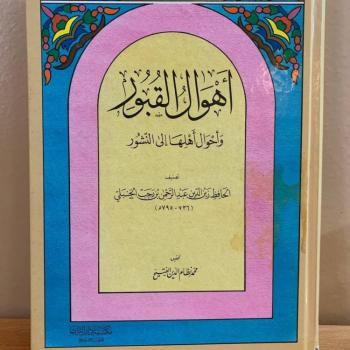 أهوال القبور
وأحوال أهلها إلى النشور
تصنيف
الحافظ زين الدين عبد الرحمن بن رجب الحنبلي
(٧٣٦ - ٧٩٥ هـ)
تحقيق
محمد نظام الدين الفتيح